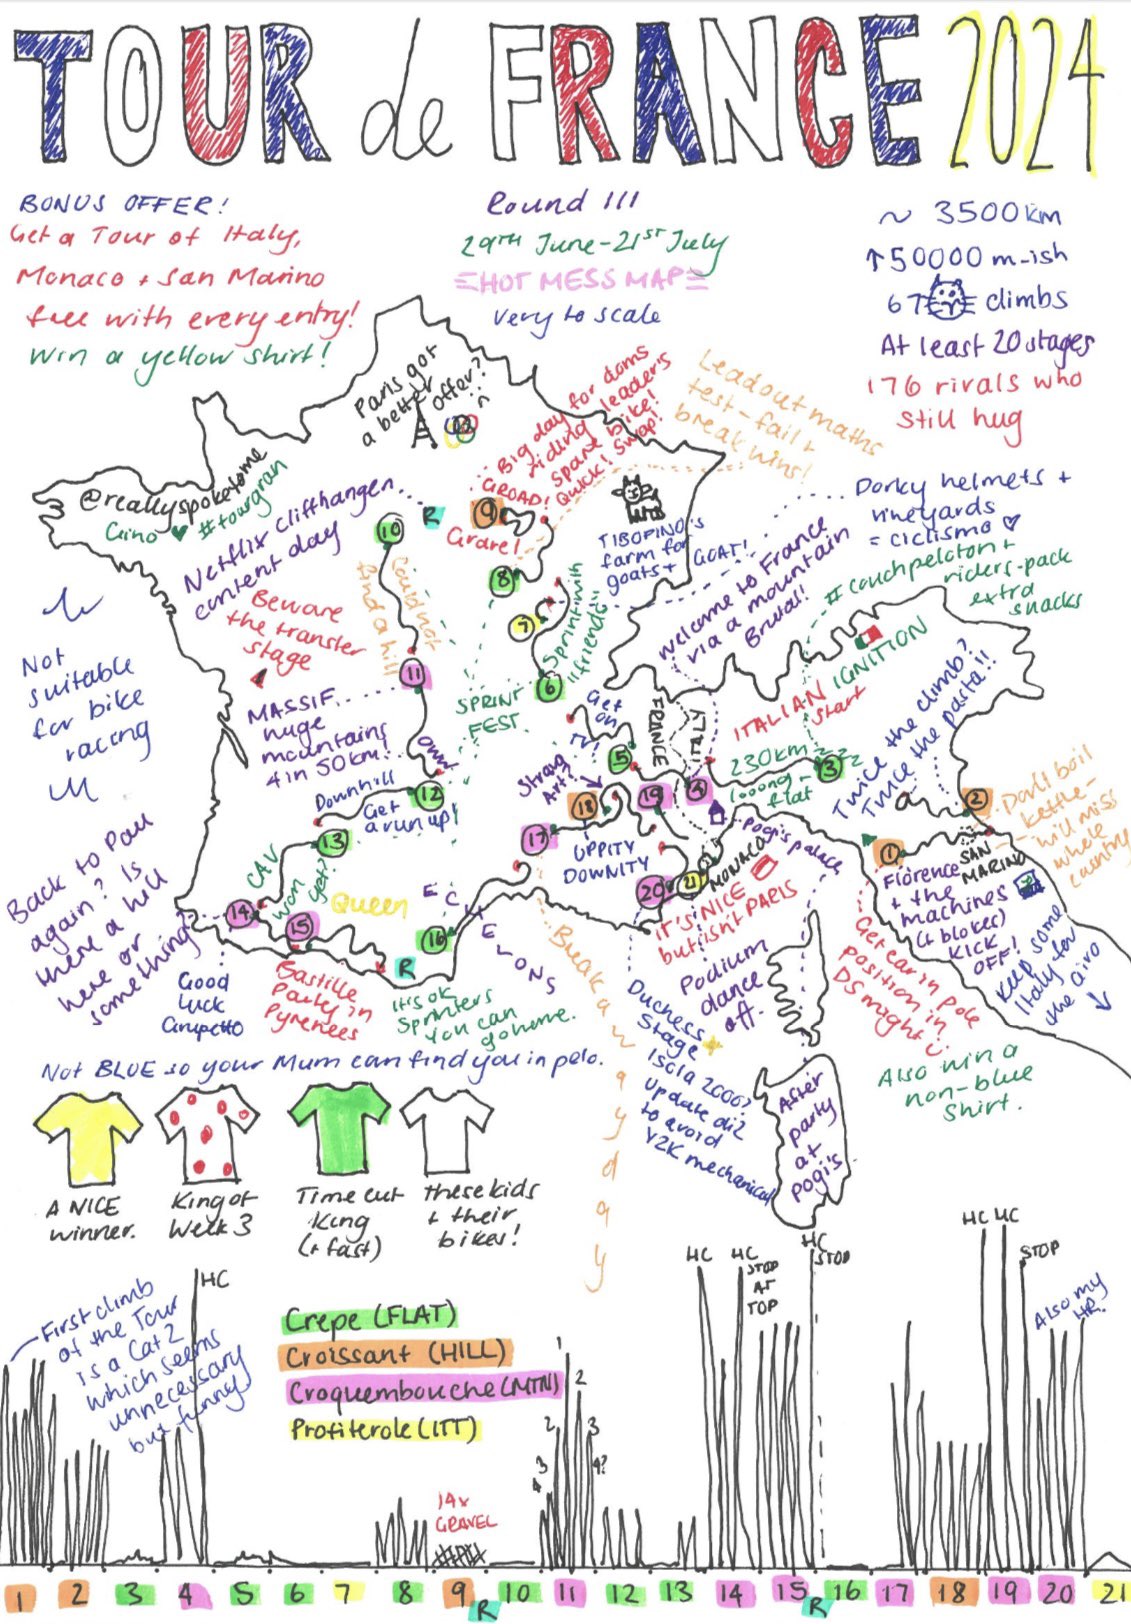 TOUR de FRANCE 2024
BONUS OFFER!
Get a Tour of Italy,
Monaco + San Marino
free with every entry!
Win a yellow shirt!
Round 111
29TH June-21ST July
HOT MESS MAP
very to scale
~ 3500km
↑50000 m-ish
67 climbs
At least 20 stages
176 rivals who
still hug
Paris got
a better
offer?
Big day for doms
riding leader's
spare bike!
GROAD! Quick! Swap!
Leadout maths
test - fail +
break wins!
@reallyspoketome
Gino ♥ #tourgran
Netflix cliffhanger
content day
R
9
Gravel
10
Could not
find a hill
Beware
the transfer
stage
TIBOPINO's
farm for
goats + GOAT!
Dorky helmets +
vineyards
= ciclismo ♡
#couchpeloton +
riders-pack
extra
snacks
Welcome to France
via a mountain
Brutal!
8
7
Sprint with
"friends"
6
SPRINT
FEST
Not
suitable
for bike
racing
11
MASSIF...
huge
mountains
4 in 50km!
Oww!
Get
on
TV!
FRANCE
ITALY
ITALIAN IGNITION
Start
230km zzz
looong-
flat
3
Twice the climb?
Twice the pasta!!
5
4
19
18
Strong
Art?
17
UPPITY
DOWNITY
Downhill
Get
a run up!
12
13
CAV
won
yet?
Pogi's palace
MONACO
21
20
IT'S NICE
but isn't PARIS
2
Don't boil
kettle -
will miss
whole
country
SAN
MARINO
1
Florence
+ the
machines
(+ blokes)
KICK
OFF!
Keep some
Italy for
the Giro
Back to Pau
again? Is
there a hill
here or
something?
14
15
Queen
16
R
ECHELONS
Good
Luck
Grupetto
Bastille
Party in
Pyrenees
It's ok
Sprinters
you can
go home.
Breakawayday
Duchess
Stage
Isola 2000?
Update di2
to avoid
Y2K mechanical
Podium
dance
off.
Get car in pole
position in
DS might
Also win a
non-blue
shirt.
After
party
at
pogi's
Not BLUE so your Mum can find you in pelo.
A NICE
winner.
King of
Week 3
Time cut
King
(+ fast)
these kids
+ their
bikes!
First climb
of the Tour
is a Cat 2
which seems
unnecessary
but funny
HC
Crepe (FLAT)
Croissant (HILL)
Croquembouche (MTN)
Profiterole (ITT)
14x
GRAVEL
3
2
1
2
3
4?
HC
HC
STOP
AT
TOP
HC
STOP
HC HC
STOP
Also my
HR.
1 2 3 4 5 6 7 8 9 R 10 11 12 13 14 15 R 16 17 18 19 20 21